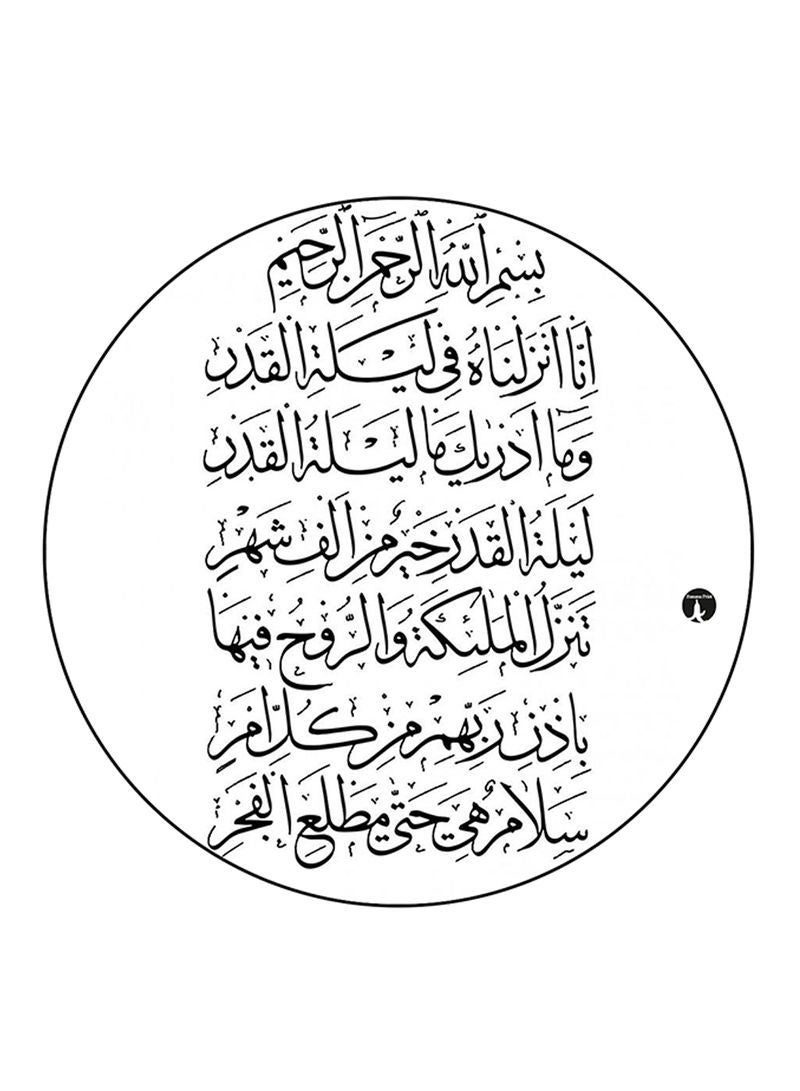 بِسْمِ اللّٰهِ الرَّحْمٰنِ الرَّحِيْمِ
اِنَّا اَنْزَلْنَاهُ فِى لَيْلَةِ الْقَدْرِ
وَمَا اَدْرٰيكَ مَا لَيْلَةُ الْقَدْرِ
لَيْلَةُ الْقَدْرِ خَيْرٌ مِنْ اَلْفِ شَهْرٍ
تَنَزَّلُ الْمَلٰئِكَةُ وَالرُّوْحُ فِيْهَا
بِاِذْنِ رَبِّهِمْ مِنْ كُلِّ اَمْرٍ
سَلَامٌ هِىَ حَتّٰى مَطْلَعِ الْفَجْرِ